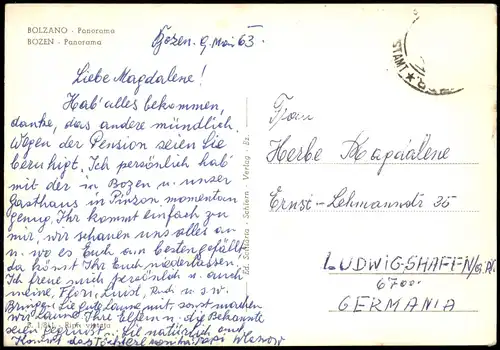 BOLZANO - Panorama
BOZEN - Panorama
Bozen. 9. Mai 63.
Liebe Magdalene!
Hab' alles bekommen,
danke, das andere mündlich.
Wegen der Pension seien Sie
beruhigt. Ich persönlich hab
mit der in Bozen u. unser
Gasthaus in Pinzon momentan
genug. Ihr kommt einfach zu
mir, wir schauen uns alles an
u. wo es Euch am besten gefällt
da könnt Ihr Euch niederlassen.
Ich freue mich persönlich u. auch
meine, Luise, u. s. w.
Bringen Sie gute Laune mit, sonst machen
wir Laune. Ihre Eltern u. die Bekannte
seien gegrüsst. Sie natürlich auch
Kommt das Töchterl
Ed. Schlaria - Schlern - Verlag - Ed.
Rip. vietata
STAMT
Frau
Herbe Magdalene
Ernst-Lehmannstr 35
LUDWIGSHAFEN/a. R.
6700
GERMANIA